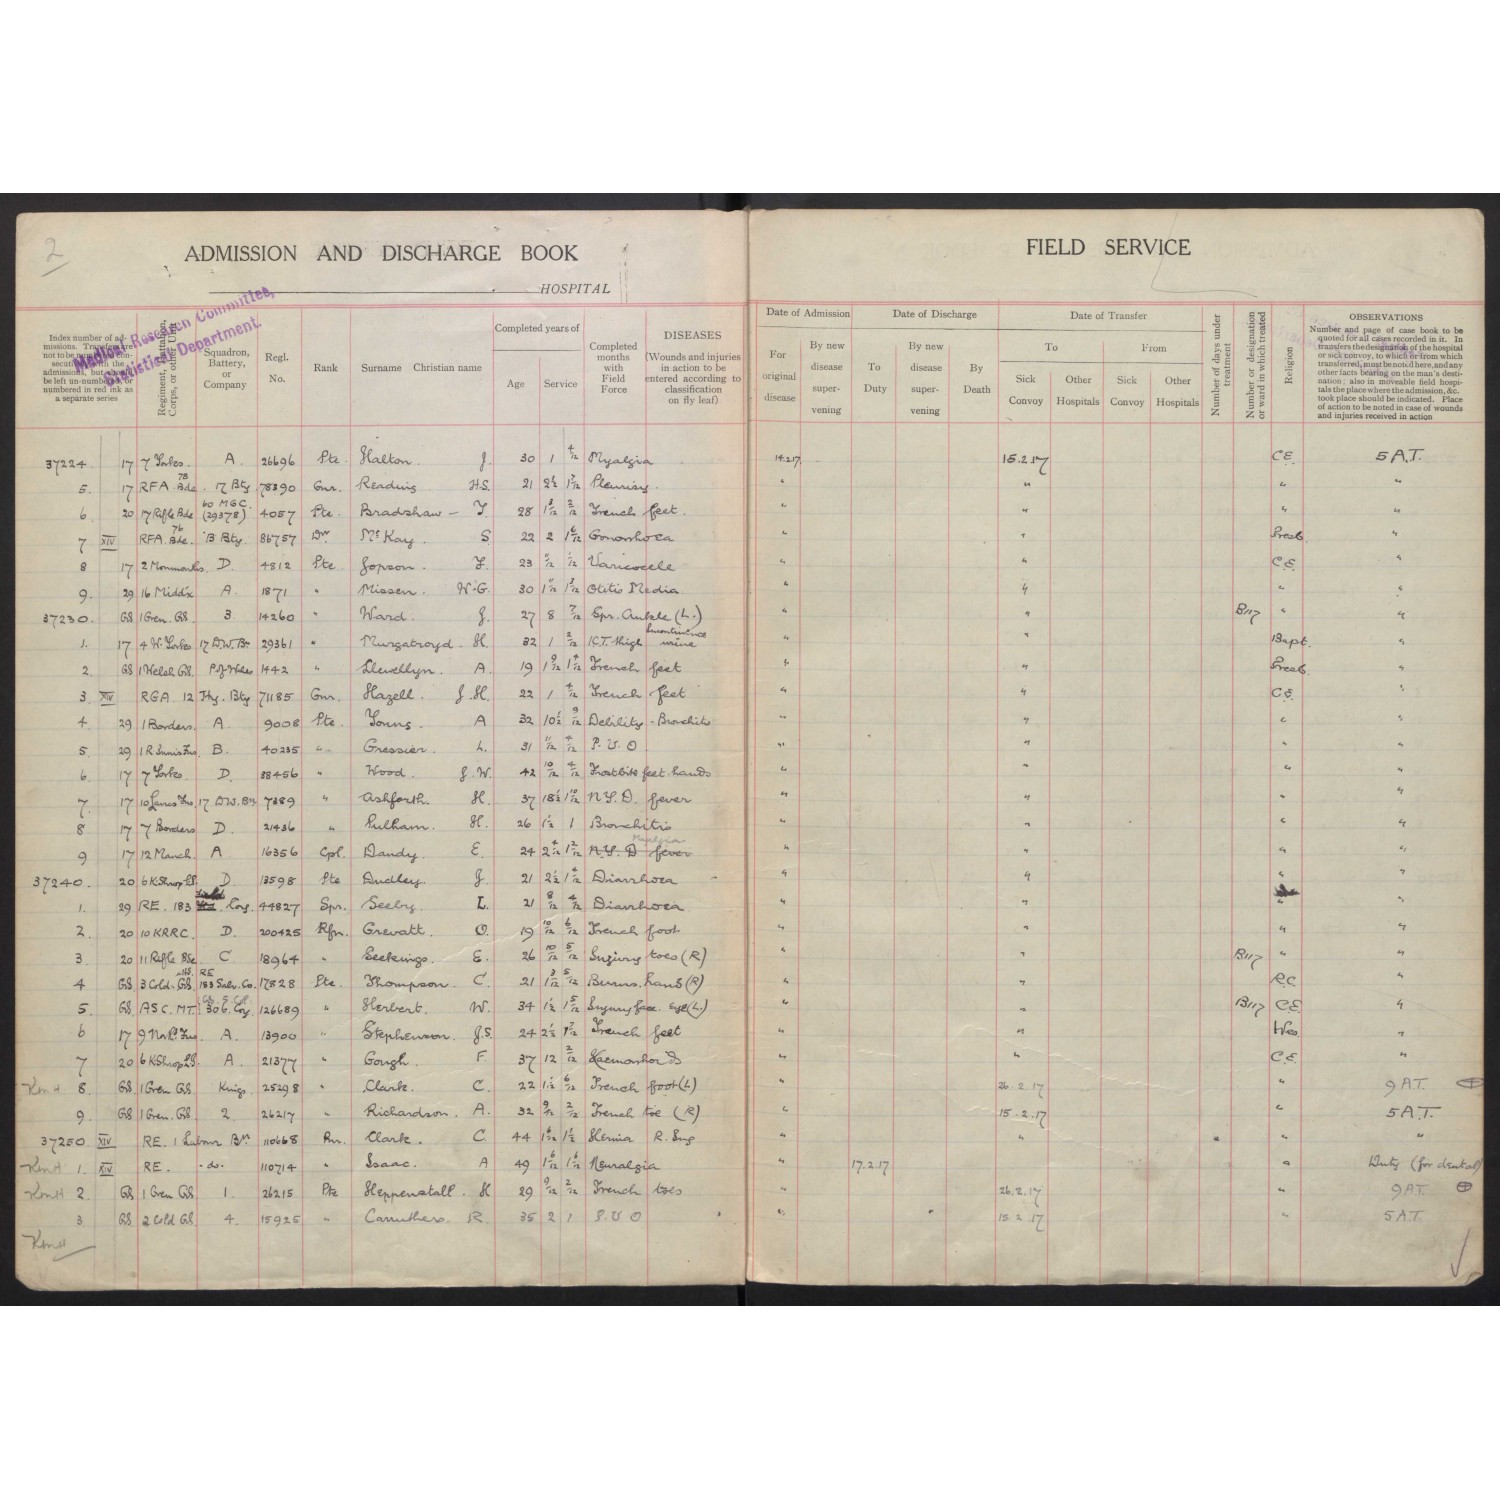 2
ADMISSION AND DISCHARGE BOOK
HOSPITAL
FIELD SERVICE
Medical Research Committee,
Statistical Department.
Index number of admissions. Transfers are not to be numbered consecutively with the admissions, but should be left un-numbered or numbered in red ink as a separate series
Regiment, Battalion, Corps, or other Unit
Squadron, Battery, or Company
Regl. No.
Rank
Surname Christian name
Completed years of
Age Service
Completed months with Field Force
DISEASES
(Wounds and injuries in action to be entered according to classification on fly leaf)
Date of Admission
For original disease
By new disease supervening
Date of Discharge
To Duty
By new disease supervening
By Death
Date of Transfer
To From
Sick Convoy Other Hospitals Sick Convoy Other Hospitals
Number of days under treatment
Number or designation or ward in which treated
Religion
OBSERVATIONS
Number and page of case book to be quoted for all cases recorded in it. In transfers the designation of the hospital or sick convoy, to which or from which transferred, must be noted here, and any other facts bearing on the man's destination; also in moveable field hospitals the place where the admission, &c. took place should be indicated. Place of action to be noted in case of wounds and injuries received in action
37224 17 7 Yorks. A. 26696 Pte. Halton J. 30 1 4/12 Myalgia 14.2.17. 15.2.17 C.E. 5 A.T.
5. 17 RFA 78 Bde. 17 Bty. 78390 Gnr. Reading H.S. 21 2½ Pleurisy. " " " "
6. 20 17 Rifle Bde 60 M.G.C. (29378) 4057 Pte. Bradshaw - T. 28 1 3/12 2/12 Trench feet. " " " "
7 XIV RFA. 76 Bde. B Bty. 86757 Dvr McKay S. 22 2 1 6/12 Gonorrhoea " " Presb. "
8 17 2 Monmouths D. 4812 Pte. Jopson. F. 23 Varicocele " " C.E. "
9. 29 16 Middx A. 1871 " Missen. W.G. 30 Otitis Media. " " " "
37230. GS 1 Gren. GS. 3. 14260 " Ward. J. 27 8 7/12 Spr. Ankle (L.) " " B117 " "
1. 17 4 W. Yorks 17 D.W. Bn 29361 " Murgatroyd. H. 32 1 2/12 I.C.T. thigh Incontinence urine " " Bapt. "
2. GS 1 Welsh GS. P. of Wales 1442 " Llewellyn. A. 19 1 9/12 1 4/12 Trench feet " " Presb. "
3. XIV RGA 12 Hvy. Bty 71185 Gnr. Hazell. J.H. 22 1 4/12 Trench feet " " C.E. "
4. 29 1 Borders. A. 9008 Pte. Young. A 32 10½ 9/12 Debility - Bronchitis " " " "
5. 29 1 R Innis Fus B. 40235 " Gressier. L. 31 11/12 4/12 P.U.O. " " " "
6. 17 7 Yorks. D. 38456 " Wood. J.W. 42 10/12 4/12 Frostbite feet hands " " " "
7. 17 10 Lancs Fus 17 D.W. Bn 7389 " Ashforth. H. 37 18½ 1 10/12 N.Y.D. fever " " " "
8 17 7 Borders D. 21436 " Pulham. H. 26 1½ 1 Bronchitis " " " "
9 17 12 Manch. A 16356 Cpl. Dandy. E. 24 2 4/12 1 2/12 N.Y.D fever Myalgia " " " "
37240. 20 6 K Shrop L.I. D. 13598 Pte Dudley. J. 21 2½ Diarrhoea " " " "
1. 29 RE. 183 Coy. 44827 Spr. Seeby. L. 21 8/12 4/12 Diarrhoea " " " "
2. 20 10 KRRC. D. 200425 Rfn. Grevatt. O. 19 10/12 6/12 Trench foot " " " "
3. 20 11 Rifle Bde. C. 18964 " Seekings. E. 26 10/12 5/12 Injury toes (R) " " B117 " "
4 GS 3 Cold. GS. RE 183 Co. 17828 Pte. Thompson. C. 21 1 3/12 5/12 Burns. hand (R) " " R.C. "
5. GS ASC. M.T. 306. Coy. 126689 " Herbert. W. 34 1½ 1 5/12 Injury face. eye (L.) " " B117 C.E. "
6 17 9 North. Fus A. 13900 " Stephenson. J.S. 24 2½ Trench feet " " Wes. "
7 20 6 K Shrop L.I. A. 21377 " Gough. F. 37 12 2/12 Haemorrhoids " " C.E. "
8. GS. 1 Gren GS Kings. 25298 " Clark. C. 22 1½ 6/12 Trench foot (L) " 26.2.17 " 9 A.T.
9. GS 1 Gren. GS. 2. 26217 " Richardson. A. 32 9/12 2/12 Trench toe (R) " 15.2.17 " 5 A.T.
37250. XIV RE. 1 Labour Bn. 110668 Pnr. Clark. C. 44 1 6/12 1½ Hernia R. Ing " " " "
1. XIV RE. -do- 110714 " Isaac. A 49 1 6/12 1 6/12 Neuralgia " 17.2.17 " Duty (for dental)
2 GS 1 Gren GS 1. 26215 Pte Heppenstall. H 29 9/12 2/12 Trench toes " 26.2.17 " 9 A.T.
3 GS. 2 Cold GS. 4. 15925 " Carruthers. R. 35 2 1 P.U.O " 15.2.17 " 5 A.T.